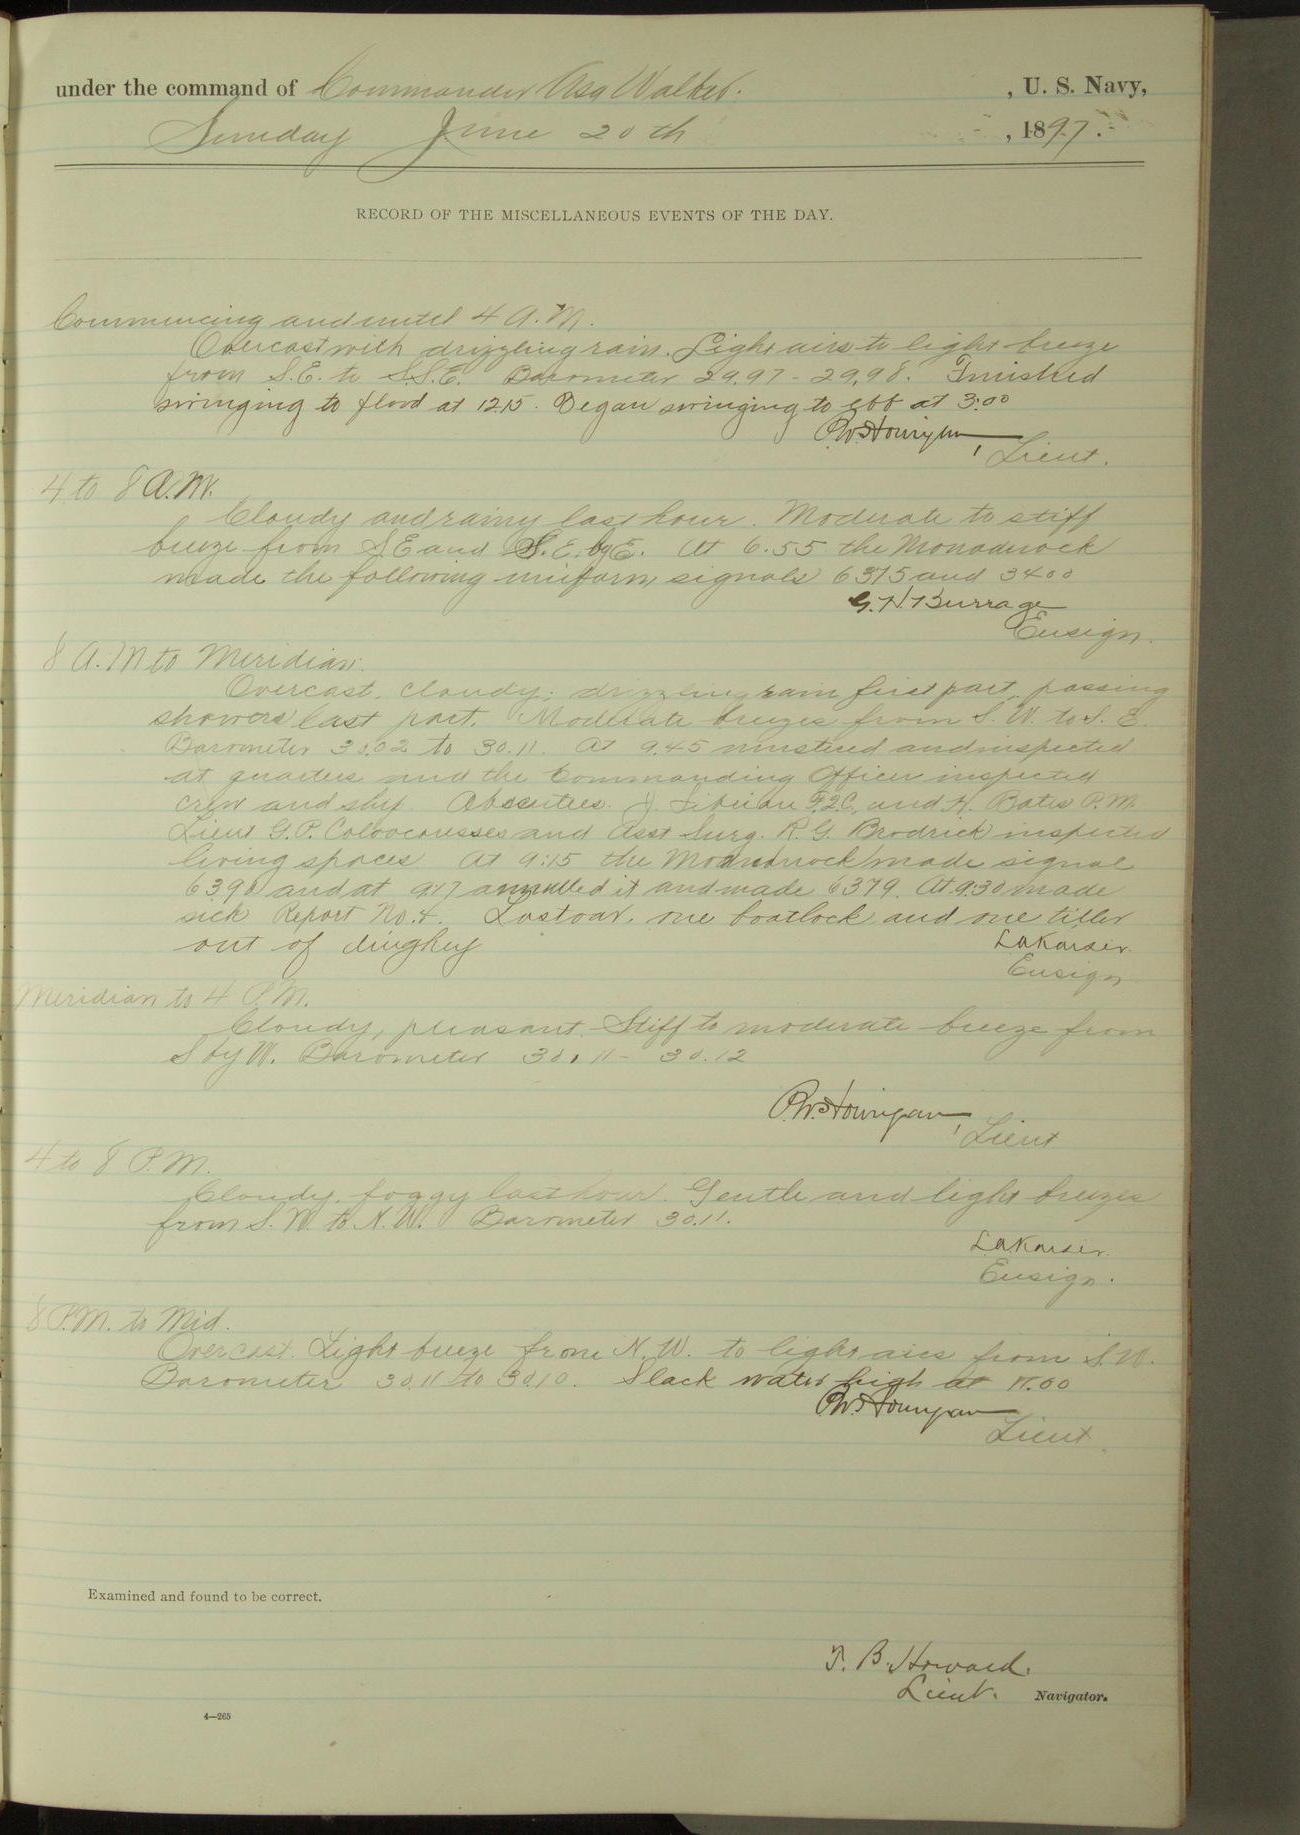 under the command of Commander Asa Walker. , U. S. Navy,
Sunday June 20th , 1897.
RECORD OF THE MISCELLANEOUS EVENTS OF THE DAY.
Commencing and until 4 A.M.
Overcast with drizzling rain. Light airs to light breeze
from S.E. to S.S.E. Barometer 29.97 - 29.98. Finished
swinging to flood at 12.15. Began swinging to ebb at 3:00
P.W. Hourigan, Lieut.
4 to 8 A.M.
Cloudy and rainy last hour. Moderate to stiff
breeze from SE and S.E. by E. At 6.55 the Monadnock
made the following uniform signals 6375 and 3400
G.H. Burrage
Ensign.
8 A.M to Meridian.
Overcast, cloudy; drizzling rain first part, passing
showers last part. Moderate breezes from S.W. to S.E.
Barometer 30.02 to 30.11. At 9.45 mustered and inspected
at quarters and the Commanding Officer inspected
crew and ship. Absentees. J. F.2.C. and H. Bates P.M.
Lieut G.P. Colvocoresses and Asst Surg. R.G. Brodrick inspected
living spaces. At 9:15 the Monadnock made signal
6390 and at 9:17 annulled it and made 6379. At 9:30 made
sick Report No. 4. Lost oar, one boatlock and one tiller
out of dinghey
L.A. Kaiser.
Ensign
Meridian to 4 P.M.
Cloudy, pleasant. Stiff to moderate breeze from
S by W. Barometer 30.11 - 30.12
P.W. Hourigan, Lieut
4 to 8 P.M.
Cloudy, foggy last hour. Gentle and light breezes
from S.W. to N.W. Barometer 30.11.
L.A. Kaiser.
Ensign.
8 P.M. to Mid.
Overcast. Light breeze from N.W. to light airs from S.W.
Barometer 30.11 to 30.10. Slack water high at 11.00
P.W. Hourigan
Lieut.
Examined and found to be correct.
T. B. Howard.
Lieut. Navigator.
4—265